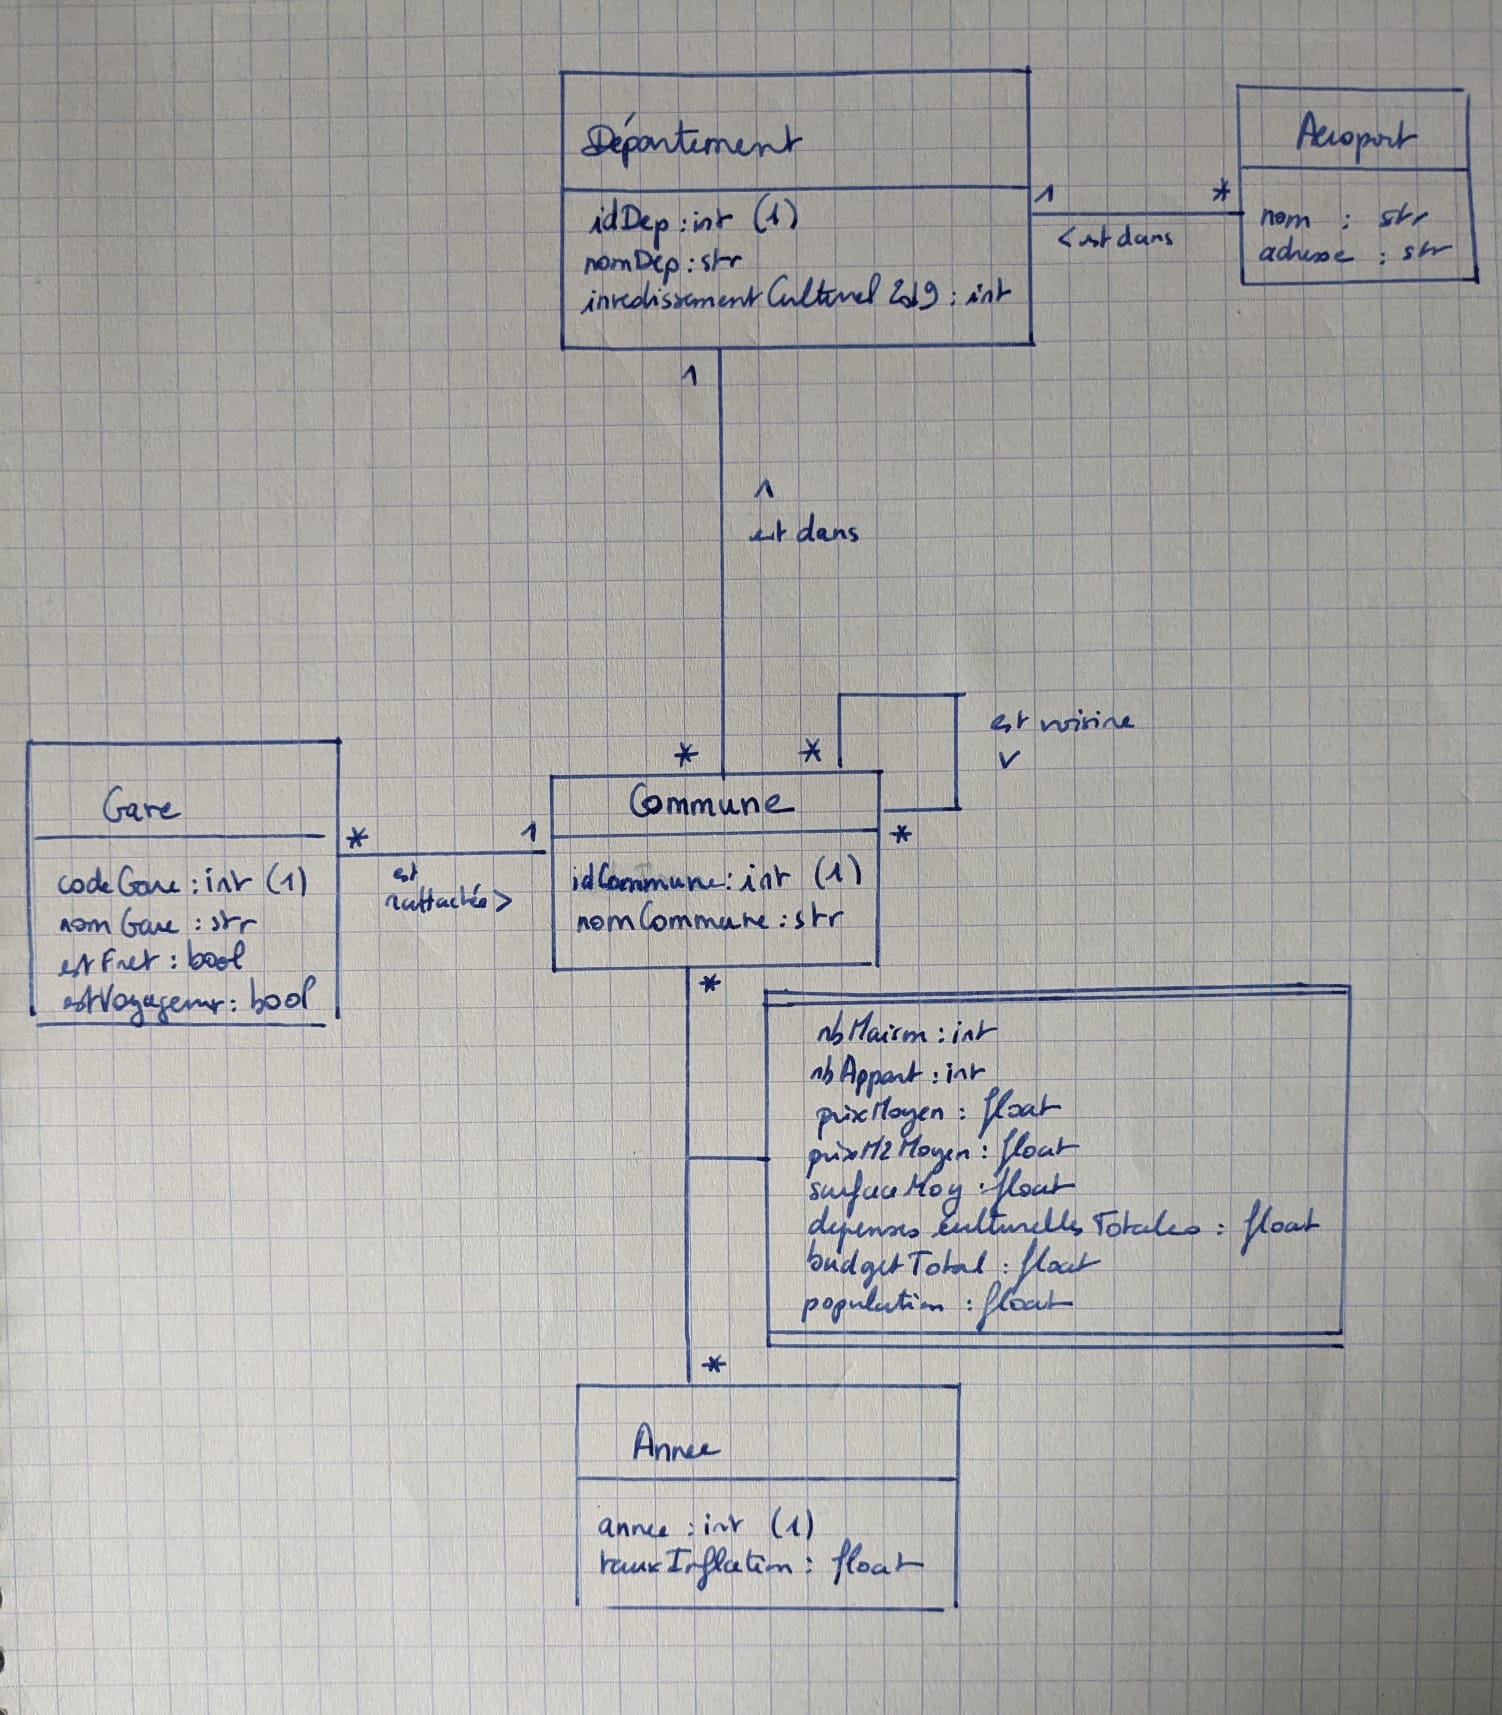 Département
idDep : int (1)
nomDep : str
investissementCulturel2019 : int
1
*
< est dans
Aeroport
nom : str
adresse : str
1
^
est dans
*
*
est voisine
v
*
Gare
codeGare : int (1)
nomGare : str
estFret : bool
estVoyageur : bool
*
1
est
rattachée >
Commune
idCommune : int (1)
nomCommune : str
*
nbMaison : int
nbAppart : int
prixMoyen : float
prixM2Moyen : float
surfaceMoy : float
depenses culturelles Totales : float
budgetTotal : float
population : float
*
Annee
annee : int (1)
tauxInflation : float